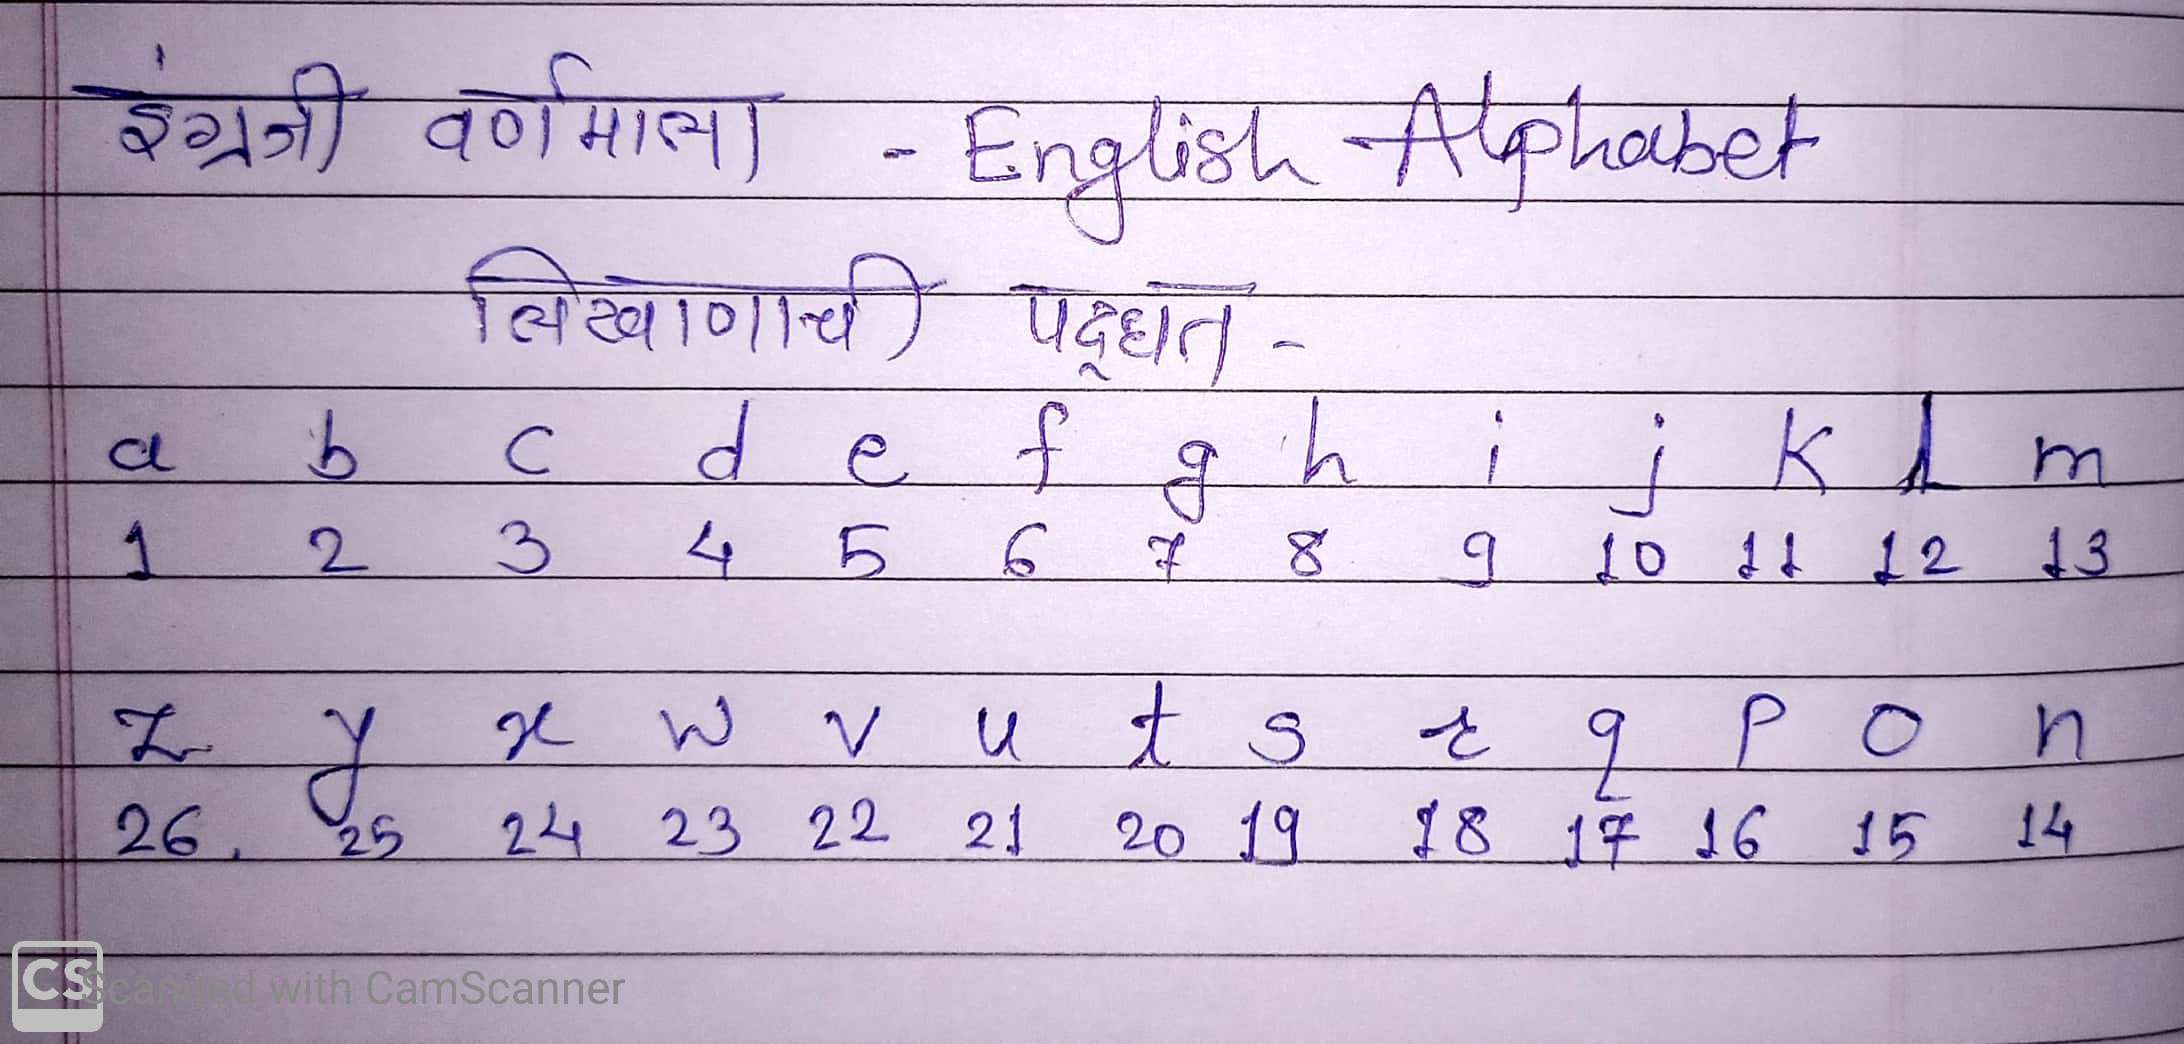 इंग्रजी वर्णमाला - English Alphabet
लिखाणाची पद्धत -
a b c d e f g h i j k l m
1 2 3 4 5 6 7 8 9 10 11 12 13
z y x w v u t s r q p o n
26. 25 24 23 22 21 20 19 18 17 16 15 14
CS Scanned with CamScanner